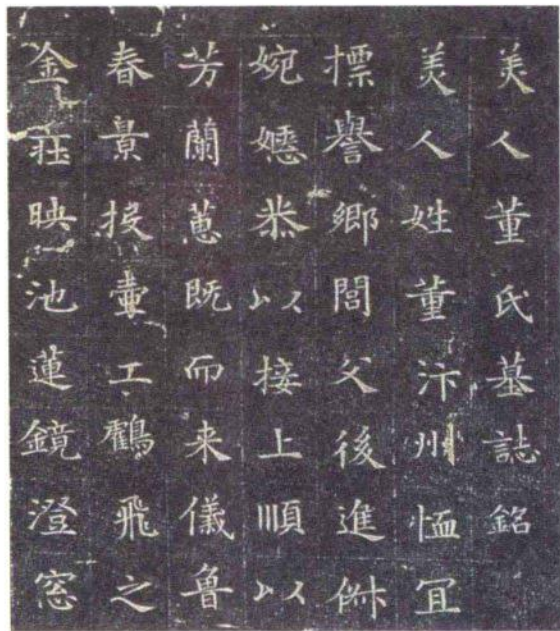 美人董氏墓誌銘
美人姓董汴州恤冝
摽譽鄉閭父後進俶
婉嬺恭以接上順以
芳蘭蕙既而来儀魯
春景投壷工鸖飛之
金莊映池蓮鏡澄窓